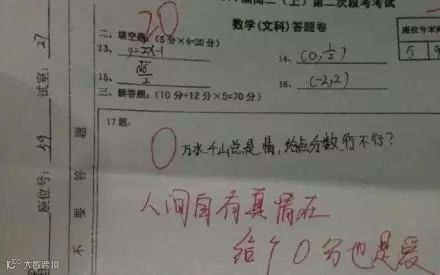 (上)第二次段考考试
数学(文科)答题卷
座位号末
5
20
二、填空题:(5分×4=20分)
13、y=2x-1
14、(0,1/2)
15、√6/2
16、(-2,2)
三、解答题:(10分+12分×5=70分)
17题:
0
万水千山总是情,给点分数行不行?
人间自有真情在
给个0分也是爱
试室:27
座位号:39
不要答题
大数跨境